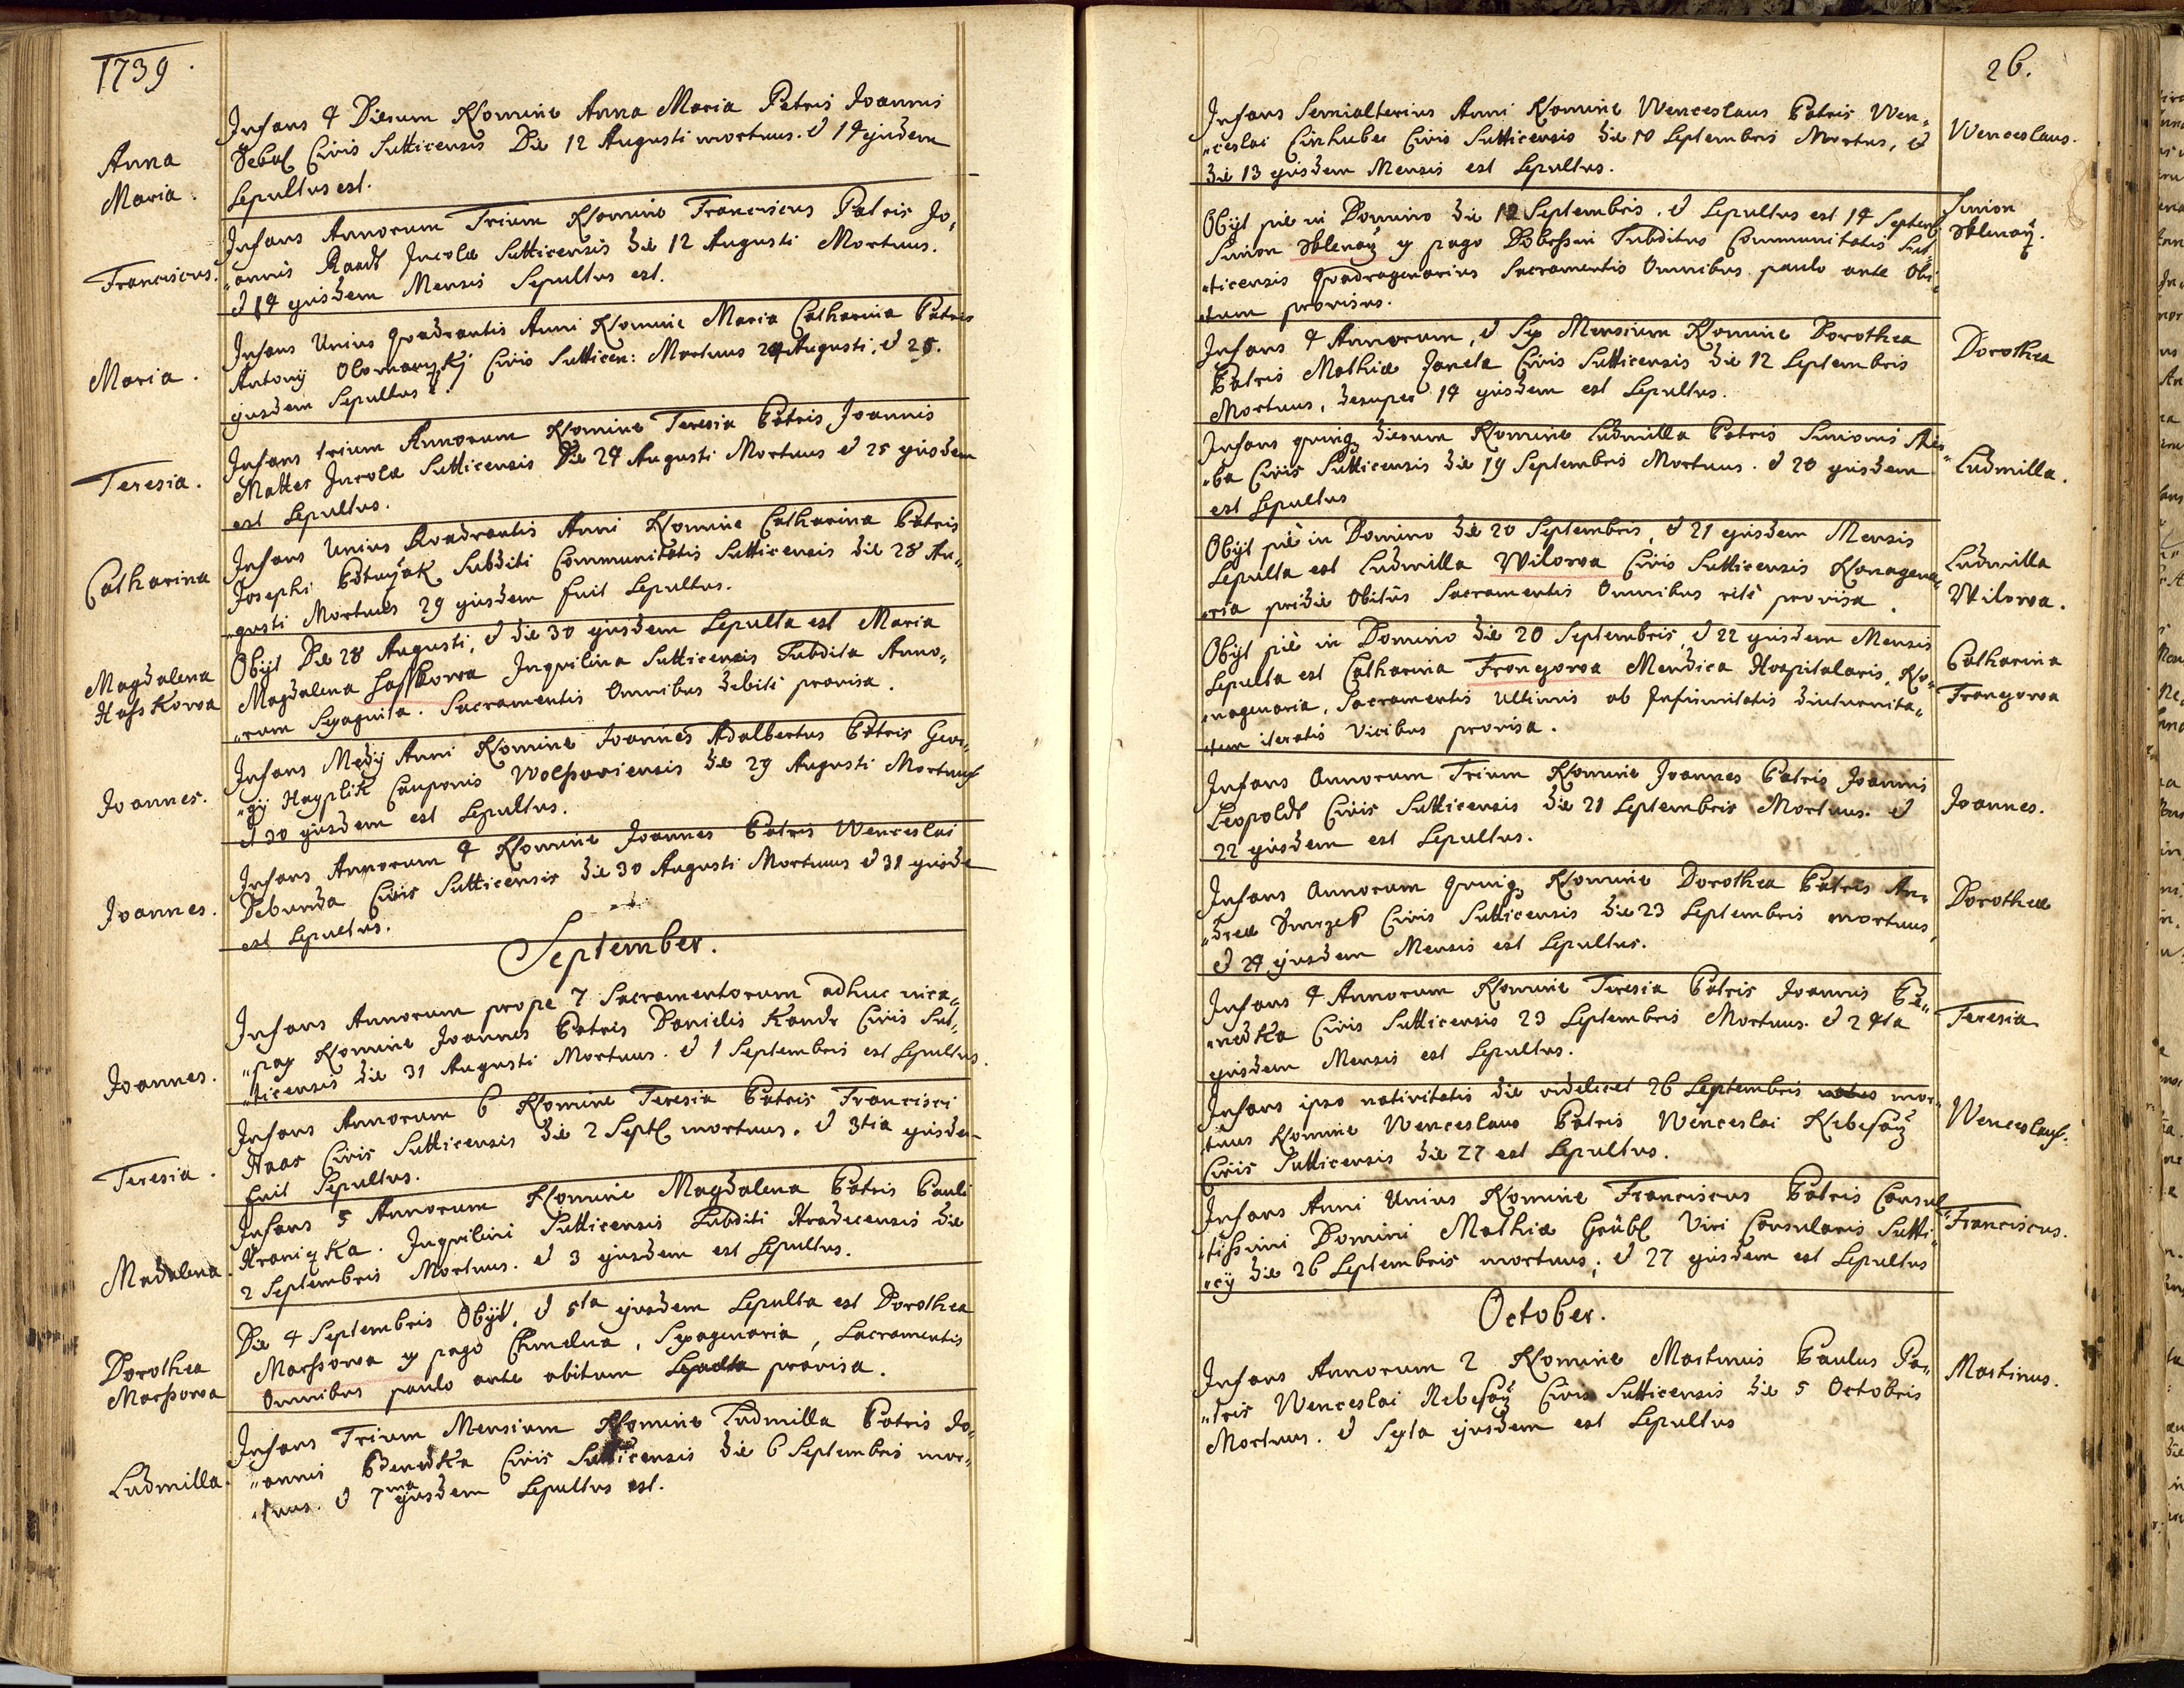 1739.
Anna
Maria.
Infans 4 Dierum Nomine Anna Maria Patris Joannis
Civis Sutticensis Die 12 Augusti mortuus. et 14 ejusdem
Sepultus est.
Franciscus.
Infans Annorum Trium Nomine Franciscus Patris Jo„
„annis Raadt Incolæ Sutticensis die 12 Augusti Mortuus.
et 14 ejusdem Mensis Sepultus est.
Maria.
Infans Unius quadrantis Anni Nomine Maria Catharina Patris
Antonij Civis Sutticen: Mortuus 24 Augusti, et 25.
ejusdem Sepultus ē.
Teresia.
Infans trium Annorum Nomine Teresia Patris Joannis
Matter Incolæ Sutticensis Die 24 Augusti Mortuus et 25 ejusdem
est Sepultus.
Catharina
Infans Unius Quadrantis Anni Nomine Catharina Patris
Josephi Subditi Communitatis Sutticensis die 28 Au„
„gusti Mortuus 29 ejusdem fuit Sepultus.
Magdalena
Hasskowa
Obijt Die 28 Augusti, et die 30 ejusdem Sepulta est Maria
Magdalena Hasskowa Inquilina Sutticensis Subdita Anno„
„rum Sexaginta. Sacramentis Omnibus debitè provisa.
Joannes.
Infans Medij Anni Nomine Joannes Adalbertus Patris Geor„
„gij Hayplik Cauponis Wolssowiensis die 29 Augusti Mortuus
et 30 ejusdem est Sepultus.
Joannes.
Infans Annorum 4 Nomine Joannes Patris Wenceslai
Deburda Civis Sutticensis die 30 Augusti Mortuus et 31 ejusde
est Sepultus.
September.
Joannes.
Infans Annorum prope 7 Sacramentorum adhuc inca„
„pax Nomine Joannes Patris Danielis Kandr Civis Sut„
„ticensis die 31 Augusti Mortuus. et 1 Septembris est Sepultus.
Teresia.
Infans Annorum 6 Nomine Teresia Patris Francisci
Haas Civis Sutticensis die 2 Septl mortuus. et 3tia ejusdem
fuit Sepultus.
Madalena.
Infans 5 Annorum Nomine Magdalena Patris Pauli
Hraniczka. Inquilini Sutticensis Subditi Hradicensis die
2 Septembris Mortuus. et 3 ejusdem est Sepultus.
Dorothea
Marssowa
Die 4 Septembris Obijt, et 5ta ejusdem Sepulta est Dorothea
Marssowa ex pago Chmelna, Sexagenaria, Sacramentis
Omnibus paulo ante obitum provisa.
Ludmilla.
Infans Trium Mensium Nomine Ludmilla Patris Jo„
„annis Benedka Civis Sutticensis die 6 Septembris mor„
„tuus. et 7ma ejusdem Sepultus est.
26.
Infans Semialterius Anni Nomine Wenceslaus Patris Wen„
„ceslai Cinhuber Civis Sutticensis die 10 Septembris Mortus, et
die 13 ejusdem Mensis est Sepultus.
Wenceslaus.
Obijt piè in Domino die 12 Septembris. et Sepultus est 14 Septemb
Simon Sklenarž ex pago Dobessin Subditus Communitatis Sut„
„ticensis Quadragenarius Sacramentis Omnibus paulo ante Obi„
„tum provisus.
Simon
Sklenarž.
Infans 4 Annorum, et Sex Mensium Nomine Dorothea
Patris Mathiæ Janeta Civis Sutticensis die 12 Septembris
Mortuus, desuper 14 ejusdem est Sepultus.
Dorothea
Infans quinq3 dierum Nomine Ludmilla Patris Simonis
„ba Civis Sutticensis die 19 Septembris Mortuus. et 20 ejusdem
est Sepultus
Ludmilla.
Obijt piè in Domino die 20 Septembris, et 21 ejusdem Mensis
Sepulta est Ludmilla Wilowa Civis Sutticensis Nonagena„
„ria pridie Obitûs Sacramentis Omnibus ritè provisa.
Ludmilla
Wilowa.
Obijt piè in Domino die 20 Septembris, et 22 ejusdem Mensis
Sepulta est Catharina Froncyowa Mendica Hospitalaris, No„
„nagenaria, Sacramentis Ultimis ob Infirmitatis diuturnita„
„tem iteratis Vicibus provisa.
Catharina
Froncyowa
Infans Annorum Trium Nomine Joannes Patris Joannis
Leopoldt Civis Sutticensis die 21 Septembris Mortuus. et
22 ejusdem est Sepultus.
Joannes.
Infans Annorum quinq3 Nomine Dorothea Patris An„
„dreæ Smrzek Civis Sutticensis die 23 Septembris mortuus,
et 24 ejusdem Mensis est Sepultus.
Dorothea
Infans 4 Annorum Nomine Teresia Patris Joannis Be„
„nedka Civis Sutticensis 23 Septembris Mortuus. et 24ta
ejusdem Mensis est Sepultus.
Teresia
Infans ipso nativitatis die videlicet 26 Septembris natus mor„
„tuus Nomine Wenceslaus Patris Wenceslai Nebesarž
Civis Sutticensis die 27 est Sepultus.
Wenceslaus.
Infans Anni Unius Nomine Franciscus Patris Consul„
„tissimi Domini Mathiæ Gräbl Viri Consularis Sutti„
„cij die 26 Septembris mortuus, et 27 ejusdem est Sepultus
Franciscus.
October.
Infans Annorum 2 Nomine Martinus Paulus Pa„
„tris Wenceslai Nebesarž Civis Sutticensis die 5 Octobris
Mortuus. et Sexta ejusdem est Sepultus
Martinus.